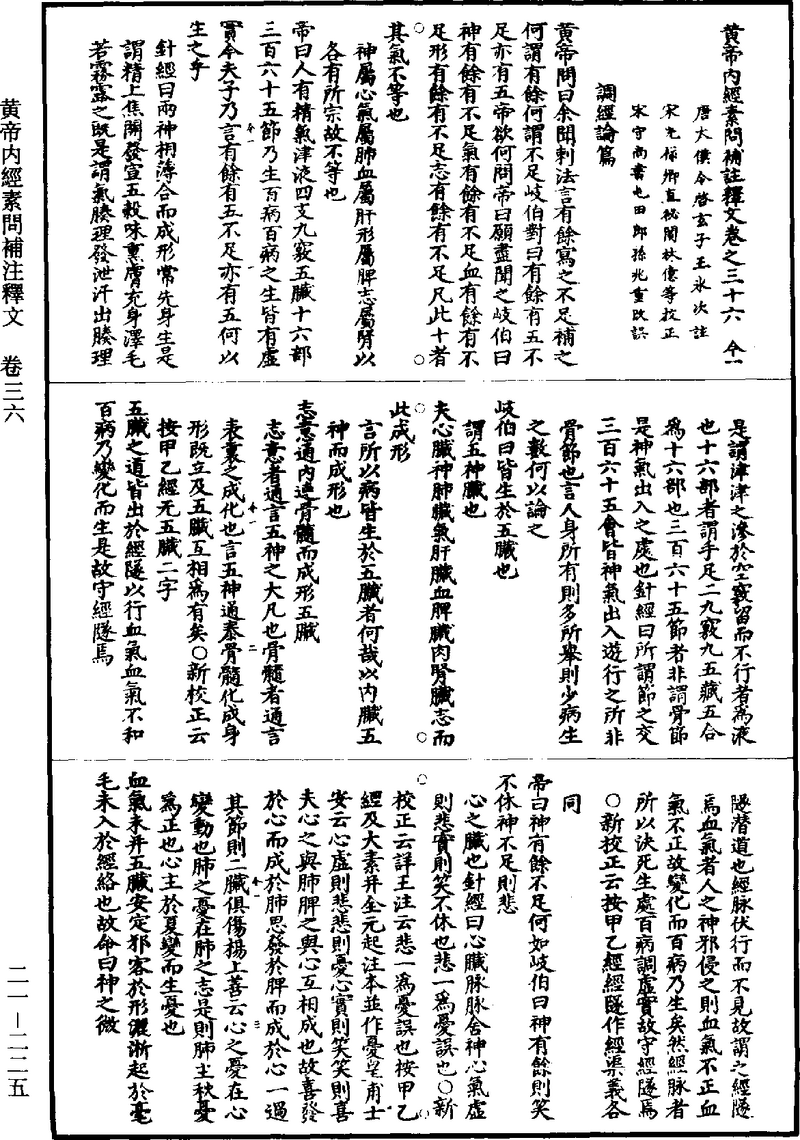 黃帝內經素問補註釋文卷之三十六 今一
唐太僕令啓玄子王冰次註
宋光祿卿直祕閣林億等校正
宋守尚書屯田郎孫兆重改誤
調經論篇
黃帝問曰余聞刺法言有餘寫之不足補之
何謂有餘何謂不足岐伯對曰有餘有五不
足亦有五帝欲何問帝曰願盡聞之岐伯曰
神有餘有不足氣有餘有不足血有餘有不
足形有餘有不足志有餘有不足凡此十者
其氣不等也
神屬心氣屬肺血屬肝形屬脾志屬腎以
各有所宗故不等也
帝曰人有精氣津液四支九竅五臟十六部
三百六十五節乃生百病百病之生皆有虛
實今夫子乃言有餘有五不足亦有五何以
生之乎
針經曰兩神相薄合而成形常先身生是
謂精上焦開發宣五穀味熏膚充身澤毛
若霧露之既是謂氣腠理發泄汗出腠理
是謂津津之滲於空竅留而不行者為液
也十六部者謂手足二九竅九五藏五合
為十六部也三百六十五節者非謂骨節
是神氣出入之處也針經曰所謂節之交
三百六十五會皆神氣出入遊行之所非
骨節也言人身所有則多所舉則少病生
之數何以論之
岐伯曰皆生於五臟也
謂五神臟也
夫心臟神肺臟氣肝臟血脾臟肉腎臟志而
此成形
言所以病皆生於五臟者何哉以內臟五
神而成形也
志意通內連骨髓而成形五臟
志意者通言五神之大凡也骨髓者通言
表裏之成化也言五神通泰骨髓化成身
形既立及五臟互相為有矣○新校正云
按甲乙經无五臟二字
五臟之道皆出於經隧以行血氣血氣不和
百病乃變化而生是故守經隧焉
隧潛道也經脉伏行而不見故謂之經隧
焉血氣者人之神邪侵之則血氣不正血
氣不正故變化而百病乃生矣然經脉者
所以決死生處百病調虛實故守經隧焉
○新校正云按甲乙經經隧作經渠義各
同
帝曰神有餘不足何如岐伯曰神有餘則笑
不休神不足則悲
心之臟也針經曰心臟脉脉舍神心氣虛
則悲實則笑不休也悲一為憂誤也○新
校正云詳王注云悲一為憂誤也按甲乙
經及太素并全元起注本並作憂皇甫士
安云心虛則悲悲則憂心實則笑笑則喜
夫心之與肺脾之與心互相成也故喜發
於心而成於肺思發於脾而成於心一過
其節則二臟俱傷楊上善云心之憂在心
變動也肺之憂在肺之志是則肺主秋憂
為正也心主於夏變而生憂也
血氣未并五臟安定邪客於形灑淅起於毫
毛未入於經絡也故命曰神之微
黄帝內經素問補注釋文 卷三六
二一—二二五